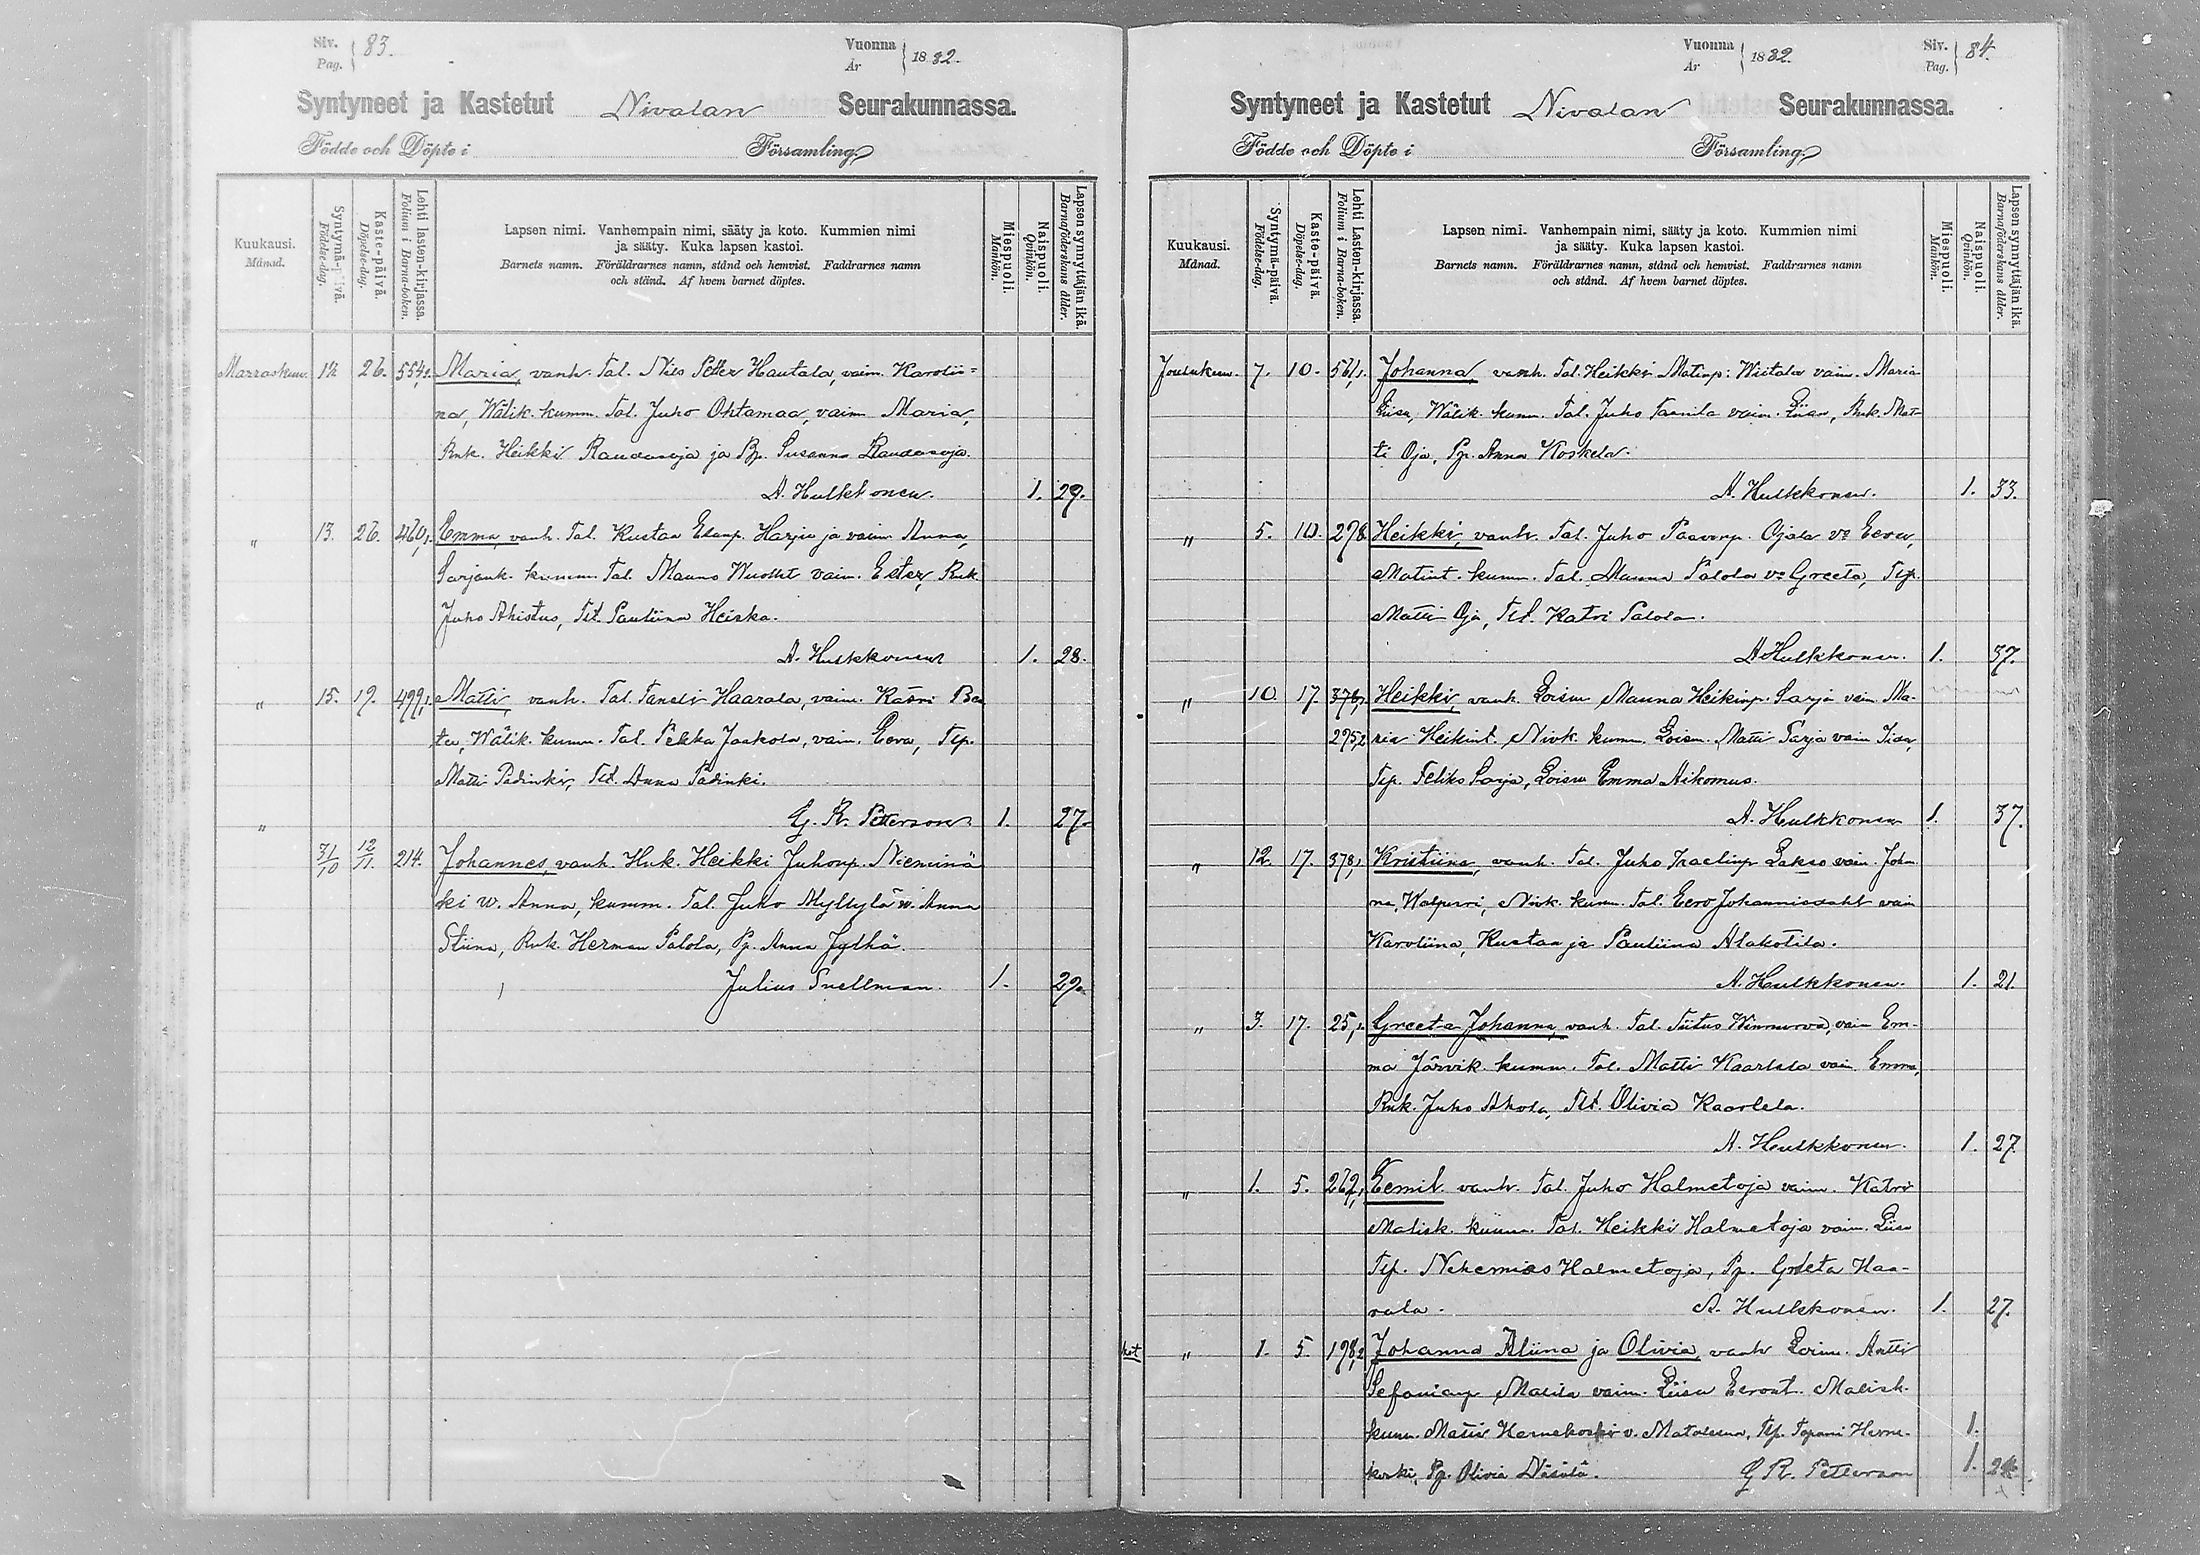 Siv. 83.
Pag.
Vuonna 1882.
År
Syntyneet ja Kastetut Nivalan Seurakunnassa.
Födde och Döpte i Församling
Kuukausi.
Månad.
Syntymä-päivä.
Födelse-dag.
Kaste-päivä.
Döpelse-dag.
Lehti lasten-kirjassa.
Folium i Barna-boken.
Lapsen nimi. Vanhempain nimi, sääty ja koto. Kummien nimi
ja sääty. Kuka lapsen kastoi.
Barnets namn. Föräldrarnes namn, stånd och hemvist. Faddrarnes namn
och stånd. Af hvem barnet döptes.
Miespuoli.
Mankön.
Naispuoli.
Qvinkön.
Lapsen synnyttäjän ikä.
Barnaföderskans ålder.
Marraskuu. 12 26. 554, Maria, vanh. Tal. Nils Petter Hautala, vaim. Karolii=
na, Wälik. kumm. Tal. Juho Ohtamaa, vaim Maria,
Rnk. Heikki Raudasoja ja Pp. Susanna Raudasoja.
A. Hulkkonen. 1. 29.
" 13. 26. 460, Emma, vanh. Tal. Kustaa Harju ja vaim Anna,
Sarjank. kumm. Tal. Mauno vaim. Ester, Rnk.
Juho Ahistus, Tlt. Pauliina Heiska.
A. Hulkkonen 1. 28.
" 15. 19. 499, Matti, vanh. Tal. Taneli Haarala, vaim. Katri Bea
ta, Wälik. kumm. Tal. Pekka Jaakola, vaim. Eeva, Tlp.
Matti Padinki, Tlt. Anna Padinki.
" G. R. Petterson 1. 27.
31/10 12/11. 214. Johannes, vanh. Huk. Heikki Juhonp. Nieminä
ki w. Anna, kumm. Tal. Juho Myllylä w. Anna
Stiina, Rnk. Herman Palola, Pp. Anna Jylhä.
Julius Snellman. 1. 29.
Vuonna 1882.
År
Siv. 84.
Pag.
Syntyneet ja Kastetut Nivalan Seurakunnassa.
Födde och Döpte i Församling
Kuukausi.
Månad.
Syntymä-päivä.
Födelse-dag.
Kaste-päivä.
Döpelse-dag.
Lehti Lasten-kirjassa.
Folium i Barna-boken.
Lapsen nimi. Vanhempain nimi, sääty ja koto. Kummien nimi
ja sääty. Kuka lapsen kastoi.
Barnets namn. Föräldrarnes namn, stånd och hemvist. Faddrarnes namn
och stånd. Af hvem barnet döptes.
Miespuoli.
Mankön.
Naispuoli.
Qvinkön.
Lapsen synnyttäjän ikä.
Barnaföderskans ålder.
Joulukuu. 7. 10. 561,1. Johanna, vanh. Tal. Heikki Matinp: Wiitala vaim. Maria
Liisa, Wälik. kumm. Tal. Juho Taanila vaim. Liisa, Rnk. Mat-
ti Oja, Pp. Anna Koskela.
A. Hulkkonen. 1. 33.
" 5. 10. 278 Heikki, vanh. Tal. Juho Paavonp. Ojala v: Eeva,
Matint. kumm. Tal. Manna Palola v: Greeta, Tlp.
Matti Oja, Tlt. Katri Palola.
A Hulkkonen. 1. 37.
" 10. 17. 378,1 Heikki, vanh. Loism Manna Heikinp. Sarja vaim. Ma-
275,2 ria Heikint. Nivk. kumm. Loism. Matti Sarja vaim Iida,
Tlp. Feliks Sarja, Loism Emma Aikomus.
A. Hulkkonen 1. 37.
" 12. 17. 378,1 Kristiina, vanh. Tal. Juho Lakso vaim. Johan
na, Walpuri, Nivk. kumm. Tal. Eero vaim
Karoliina, Kustaa ja Pauliina Alakotila.
A. Hulkkonen. 1. 21.
" 3. 17. 25, Greeta Johanna, vanh. Tal. Tiitus Winnurva, vaim Em-
ma Järvik. kumm. Tal. Matti Kaarlela vaim Emma,
Rnk. Juho Ahola, Tlt. Olivia Kaarlela.
A. Hulkkonen. 1. 27
" 1. 5. 262, Eemil vanh. Tal. Juho Halmetoja vaim. Katri
Malisk. kumm. Tal. Heikki Halmetoja vaim. Liisa
Tlp. Nehemias Halmetoja, Pp. Greeta Haa-
rala. A. Hulkkonen. 1. 27.
" 1. 5. 198,2 Johanna Aliina ja Olivia, vanh Loism. Antti
Sefanianp Malila vaim. Liisa Eeront. Malisk.
kumm. Matti Hernekoski v. Matoleena, Tlp. Tapani Herne- 1.
koski, Pp. Olivia G R. Petterson 1. 24